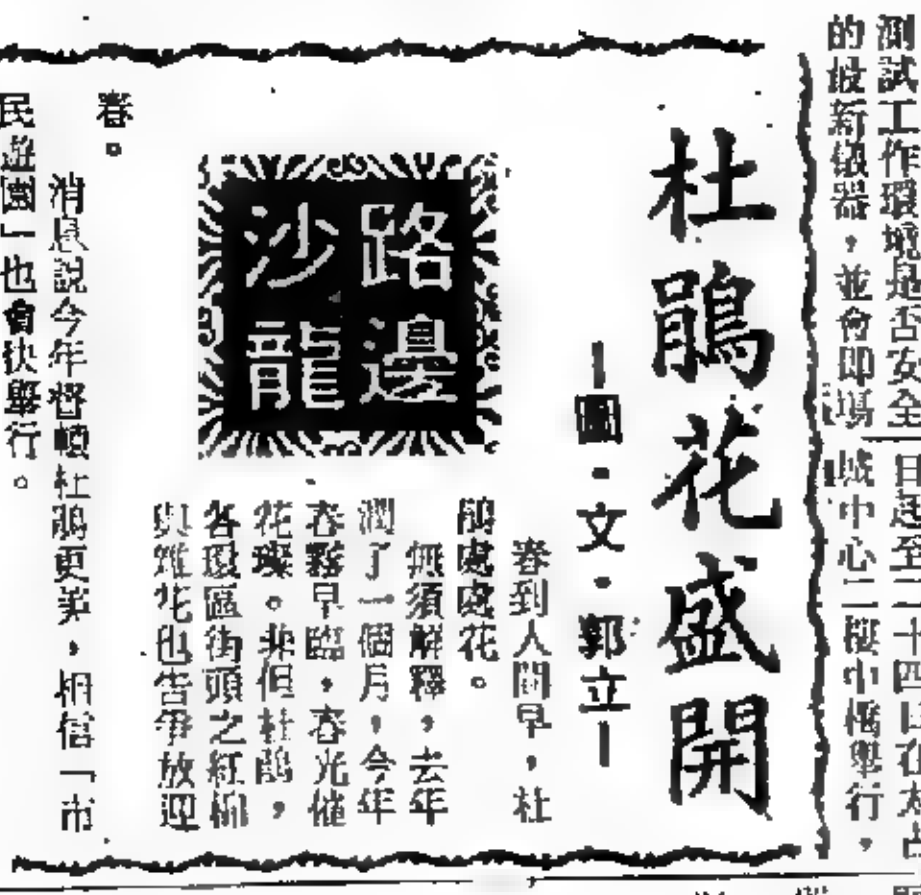 測試工作環境是否安全
的最新儀器，並會即場
日起至二十四日在太古
城中心二樓中橋舉行，
杜鵑花盛開
—圖・文・郭立—
路邊
沙龍
春到人間早，杜
鵑處處花。
無須解釋，去年
潤了一個月，今年
春聲早臨，春光催
花璨。非但杜鵑，
各環區街頭之紅棉
與雜花也告爭放迎
春。
消息說今年督轅杜鵑更美，相信「市
民遊園」也會快舉行。